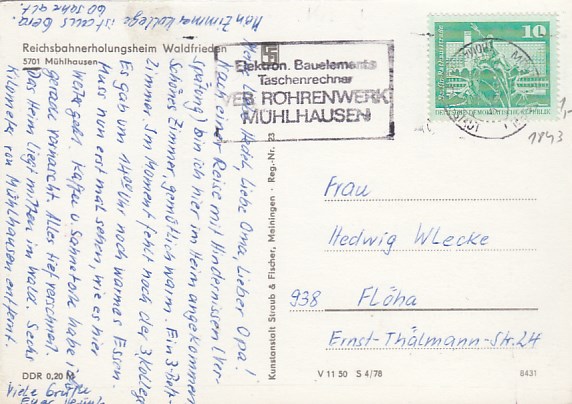 Mein Zimmerkollege ist aus Gera.
60 Jahre alt.
Reichsbahnerholungsheim Waldfrieden
5701 Mühlhausen
Liebe Oma, Lieber Opa!
Nach einer Reise mit Hindernissen (Ver-
spätung) bin ich hier im Heim angekommen
Schönes Zimmer, gemütlich warm. Ein 3-Bett-
zimmer. Im Moment fehlt noch der 3. Kollege
Es gab um 14⁰⁰ Uhr noch warmes Essen.
Muss nun erst mal sehen, wie es hier
weiter geht. Kaffee u. Sahnetorte habe ich
gerade vernascht. Alles tief verschneit.
Das Heim liegt mitten im Wald. Sechs
Kilometer von Mühlhausen entfernt.
Viele Grüße
Euer
DDR 0,20 M
Kunstanstalt Straub & Fischer, Meiningen · Reg.-Nr. 23
Elektron. Bauelemente
Taschenrechner
VEB RÖHRENWERK
MÜHLHAUSEN
10
DEUTSCHE DEMOKRATISCHE REPUBLIK
1,-
1843
Frau
Hedwig Wlecke
938 Flöha
Ernst-Thälmann-Str. 24
V 11 50 S 4/78
8431